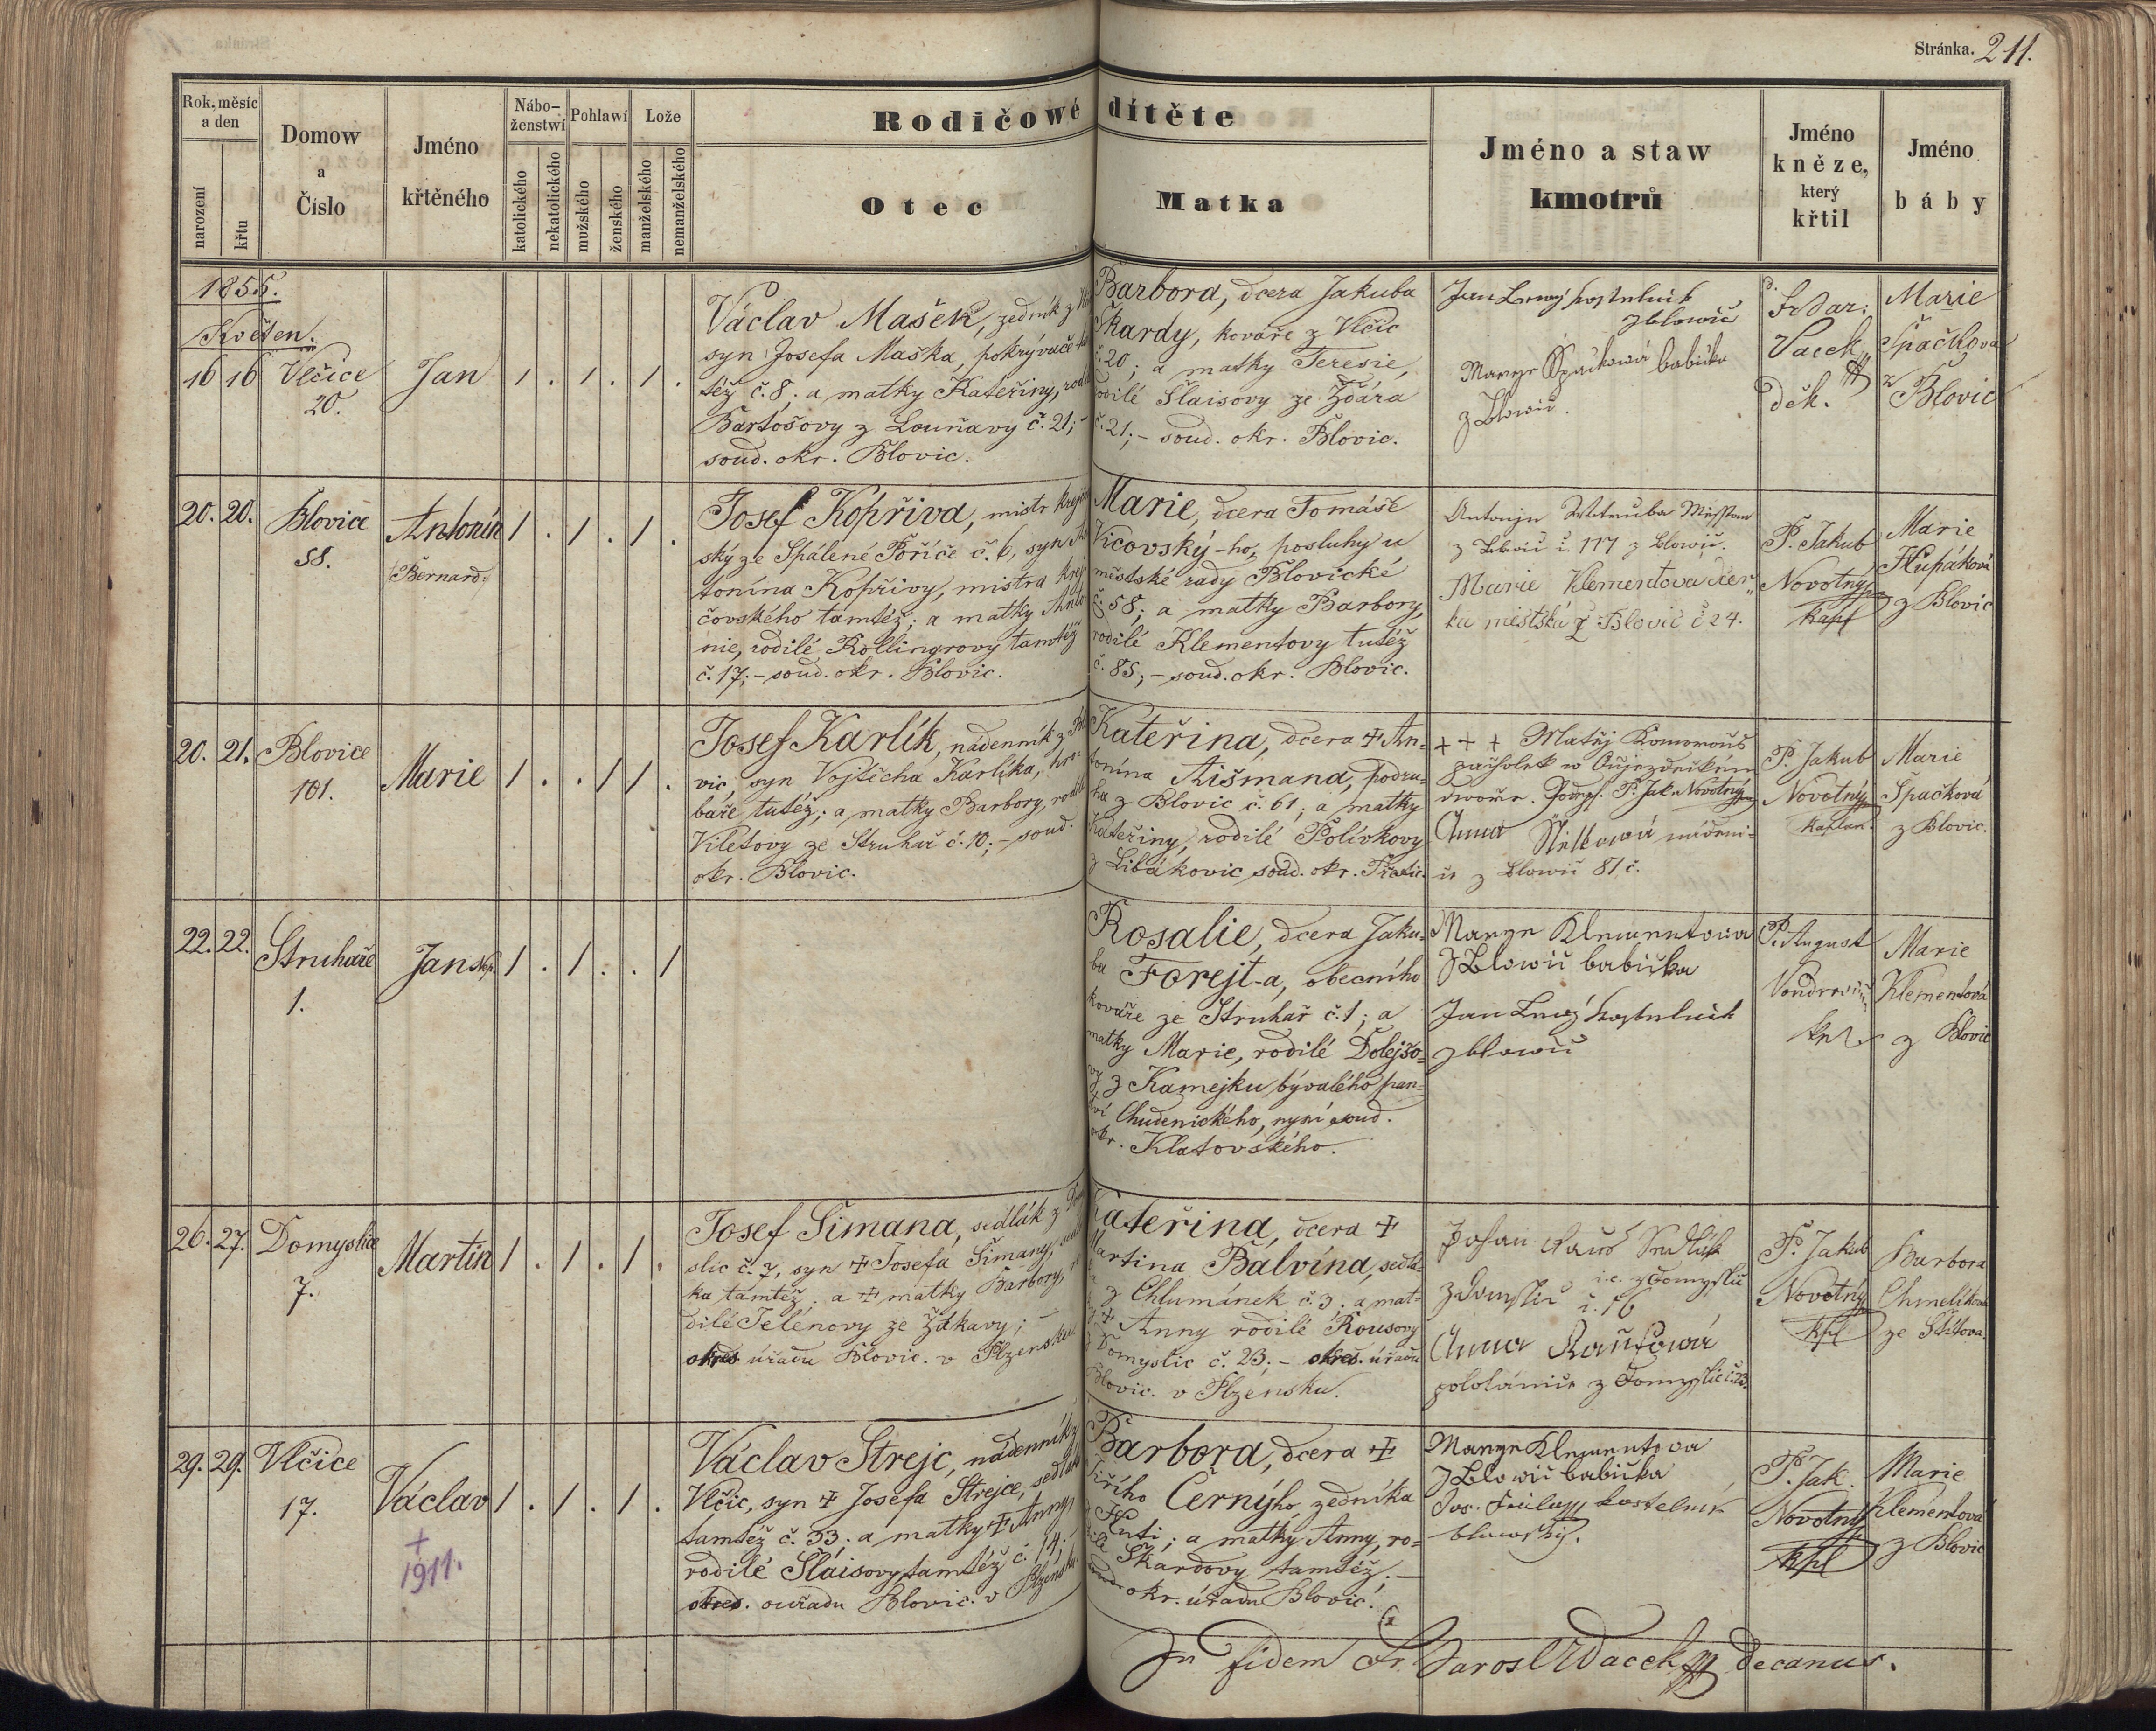 Stránka. 211.
Rok, měsíc a den
narození
křtu
Domow a Číslo
Jméno křtěného
Nábo-ženstwí
katolického
nekatolického
Pohlawí
mužského
ženského
Lože
manželského
nemanželského
Rodičowé dítěte
Otec
Matka
Jméno a staw kmotrů
Jméno kněze, který křtil
Jméno báby
1855.
Květen.
16 16 Vlčice
20.
Jan
1 . 1 . 1 .
Václav Mašek, zedník z
syn Josefa Maška, pokrývače
též č. 8. a matky Kateřiny,
Bartošovy z Louňavy č. 21; -
soud. okr. Blovic.
Barbora, dcera Jakuba
Škardy, kováře z Vlčic
č. 20; a matky Teresie,
rodilé Šlaisovy ze Ždára
č. 21; - soud. okr. Blovic.
Jan kostelník
z Blowic
Marye Spačkowá babička
z Blowic.
Vacek
děk.
Marie
Špačková
z Blovic
20. 20. Blovice
58.
Antonín
Bernard.
1 . 1 . 1 .
Josef Kopřiva, mistr krejčov
ský ze Spálené Poříče č. 6, syn
tonína Kopřivy, mistra krej
čovského tamtéž; a matky Anto
nie, rodilé Rollingrovy tamtéž
č. 17; - soud. okr. Blovic.
Marie, dcera Tomáše
Vicovský-ho, posluhy u
městské rady Blovické
č. 58; a matky Barbory,
rodilé Klementovy tutéž
č. 85; - soud. okr. Blovic.
Antonjn Wotruba
z Blowic č. 117 z Blowic.
Marie Klementova dcer„
ka městská z Blovic č 24.
P. Jakub
Novotný
kapl
Marie
Hlupáková
z Blovic
20. 21. Blovice
101.
Marie
1 . . 1 1 .
Josef Karlík, nádenník z Blo
vic, syn Vojtěcha Karlíka, hre-
báře tutéž; a matky Barbory, rodilé
Viletovy ze Struhař č. 10; - soud.
okr. Blovic.
Kateřina, dcera ‡ An-
tonína Aišmana, podru-
ha z Blovic č. 61; a matky
Kateřiny, rodilé Polívkovy
z Libákovic soud. okr. Přestic.
+ + + Matěj Komorouš
pacholek w Augezdeckém
dwoře. Podps. P. Jak. Novotný
Anna nádeni-
ce z Blowic 81 č.
P. Jakub
Novotný
kaplan.
Marie
Špačková
z Blovic.
22. 22. Struhaře
1.
Jan Nep.
1 . 1 . . 1
Rosalie, dcera Jaku-
ba Forejt-a, obecního
kováře ze Struhař č. 1; a
matky Marie, rodilé Dolejšo-
vy z Kamejku bývalého pan-
ství Chudenického, nyní soud.
okr. Klatovského.
Marye Klementowa
z Blowic babička
Jan kostelník
z Blowic
P. August
Marie
Klementová
z Blovic
26. 27. Domyslice
7.
Martin
1 . 1 . 1 .
Josef Šimana, sedlák z Domy
slic č. 7, syn ‡ Josefa Šimany, sedlá
ka tamtéž. a ‡ matky Barbory, ro
dilé Jelenovy ze Žákavy; -
okres úřadu Blovic. v Plzensku
Kateřina, dcera ‡
Martina Balvína, sedlá-
ka z Chlumánek č. 3; a mat-
ky ‡ Anny rodilé Rousovy
z Domyslic č. 23; - okres. úřadu
Blovic. v Plzensku.
Johan Rauš Sedlák
z Domyslic i.e. z Domyslic
č. 16
Anna Raušowá
pololánice z Domyslic č. 23.
P. Jakub
Novotný
kpl
Barbora
Chmelíková
ze Štítova.
29. 29. Vlčice
17.
Václav
+
1911.
1 . 1 . 1 .
Václav Strejc, nádenník z
Vlčic, syn ‡ Josefa Strejce, sedláka
tamtéž č. 33. a matky ‡ Anny,
rodilé Šlaisovy tamtéž č. 14;
okres. ouřadu Blovic. v Plzensku.
Barbora, dcera ‡
Jiřího Černýho, zedníka
z Huti; a matky Anny, ro-
dilé Škardovy tamtéž. -
okr. úřadu Blovic.
Marye Klementova
z Blowic babička
Jos. kostelník
blowský.
P. Jak.
Novotný
kpl
Marie
Klementová
z Blovic
In fidem Fr. Jarosl Vacek decanus.